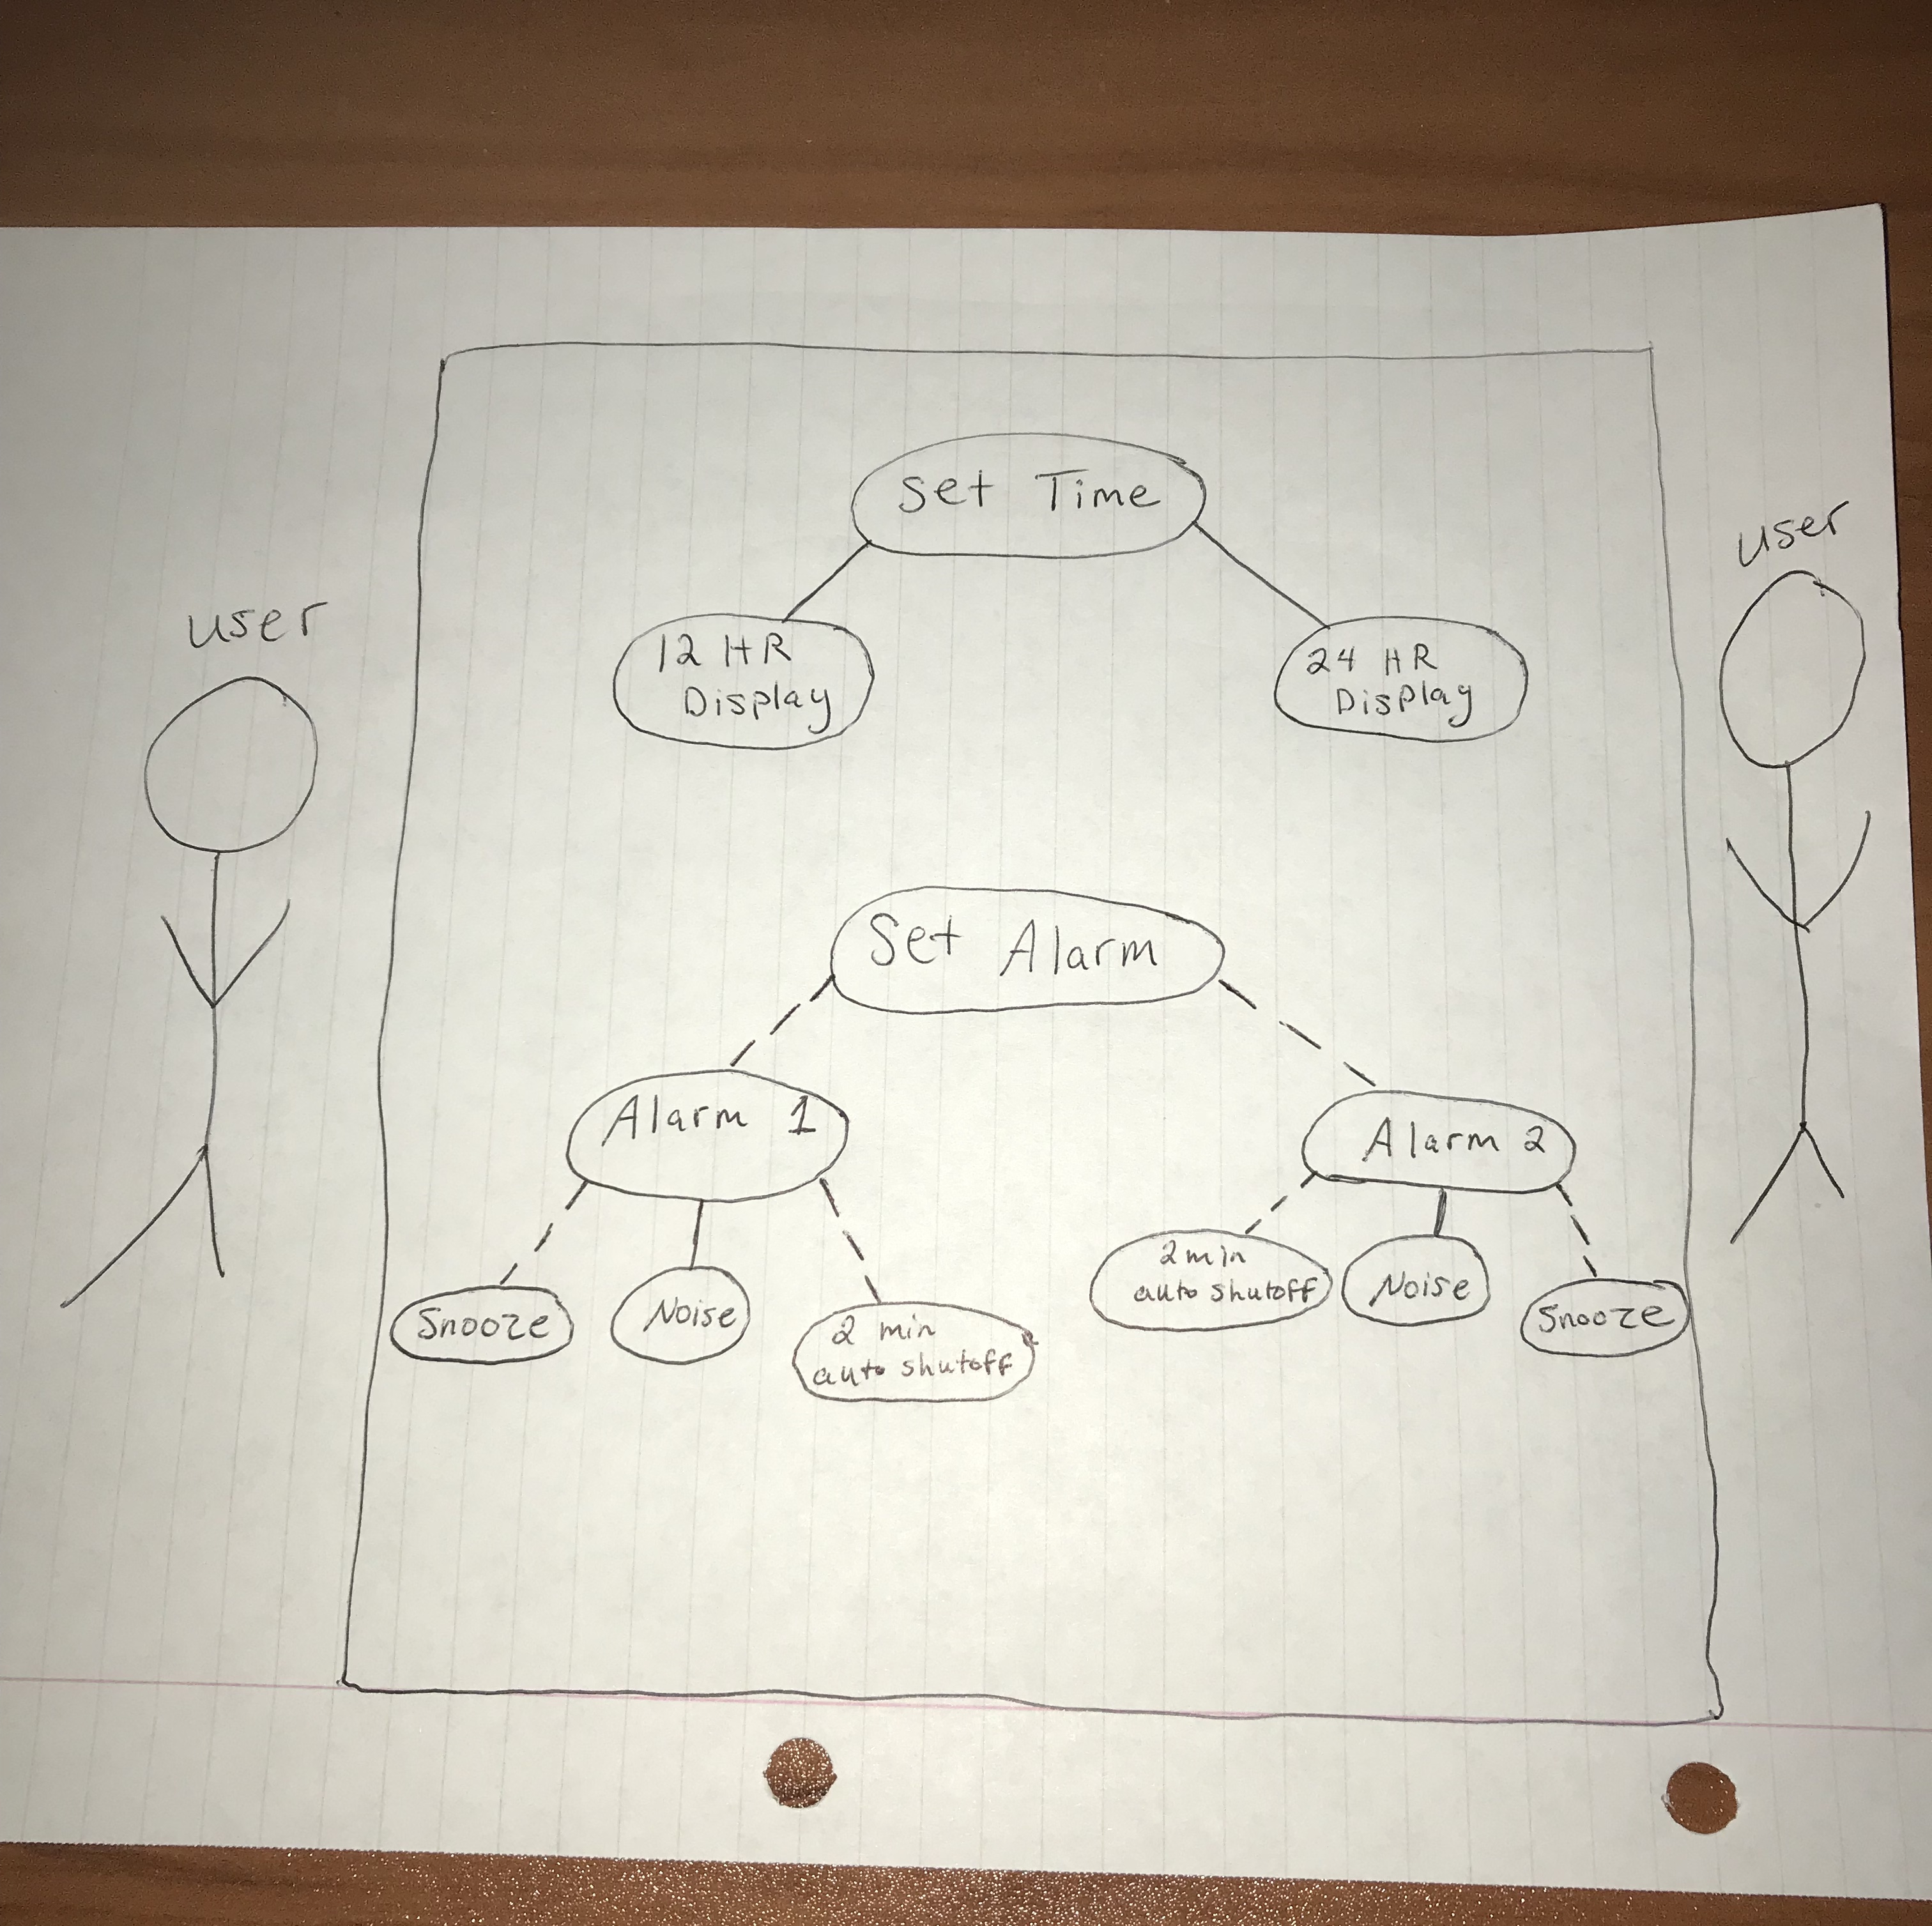 Set Time
user
user
12 HR
Display
24 HR
Display
Set Alarm
Alarm 1
Alarm 2
Snooze
Noise
2 min
auto shutoff
2 min
auto shutoff
Noise
Snooze